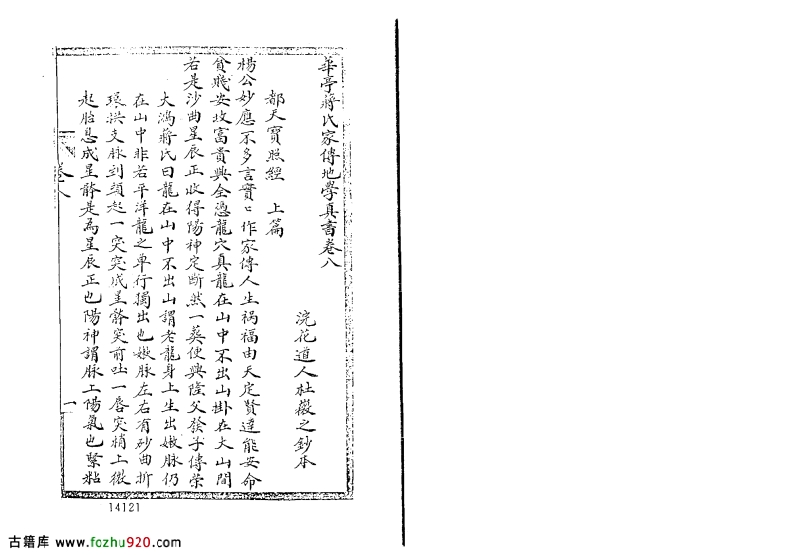 華亭蔣氏家傳地學真書卷八
浣花道人杜薇之鈔本
都天寶照經　上篇
楊公妙應不多言實〻作家傳人生禍福由天定賢達能安命
貧賤安坟富貴興全憑龍穴真龍在山中不出山掛在大山間
若是沙曲星辰正收得陽神定斷然一葵便興隆父發子傳榮
大鴻蔣氏曰龍在山中不出山謂老龍身上生出嫩脉仍
在山中非若平洋龍之單行獨出也嫩脉左右有砂曲折
環拱支脉到頭起一突突成星體突前吐一唇突稍上微
起胎息成星體是為星辰正也陽神謂脉上陽氣也緊粘
卷八
一
14121
古籍库 www.fozhu920.com